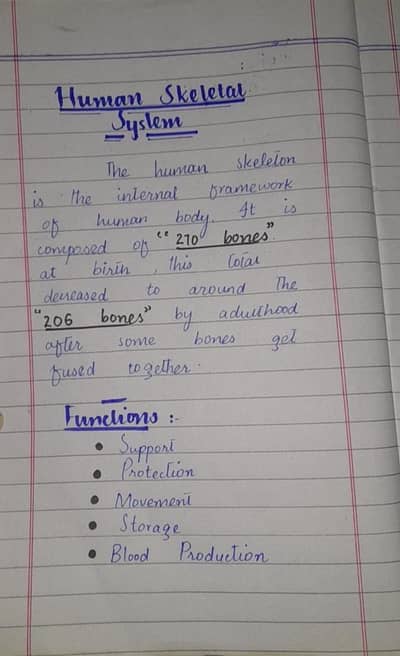 Human Skeletal
System
The human skeleton
is the internal framework
of human body. It is
composed of "270 bones"
at birth, this total
decreased to around the
"206 bones" by adulthood
after some bones get
fused together.
Functions :-
• Support
• Protection
• Movement
• Storage
• Blood Production